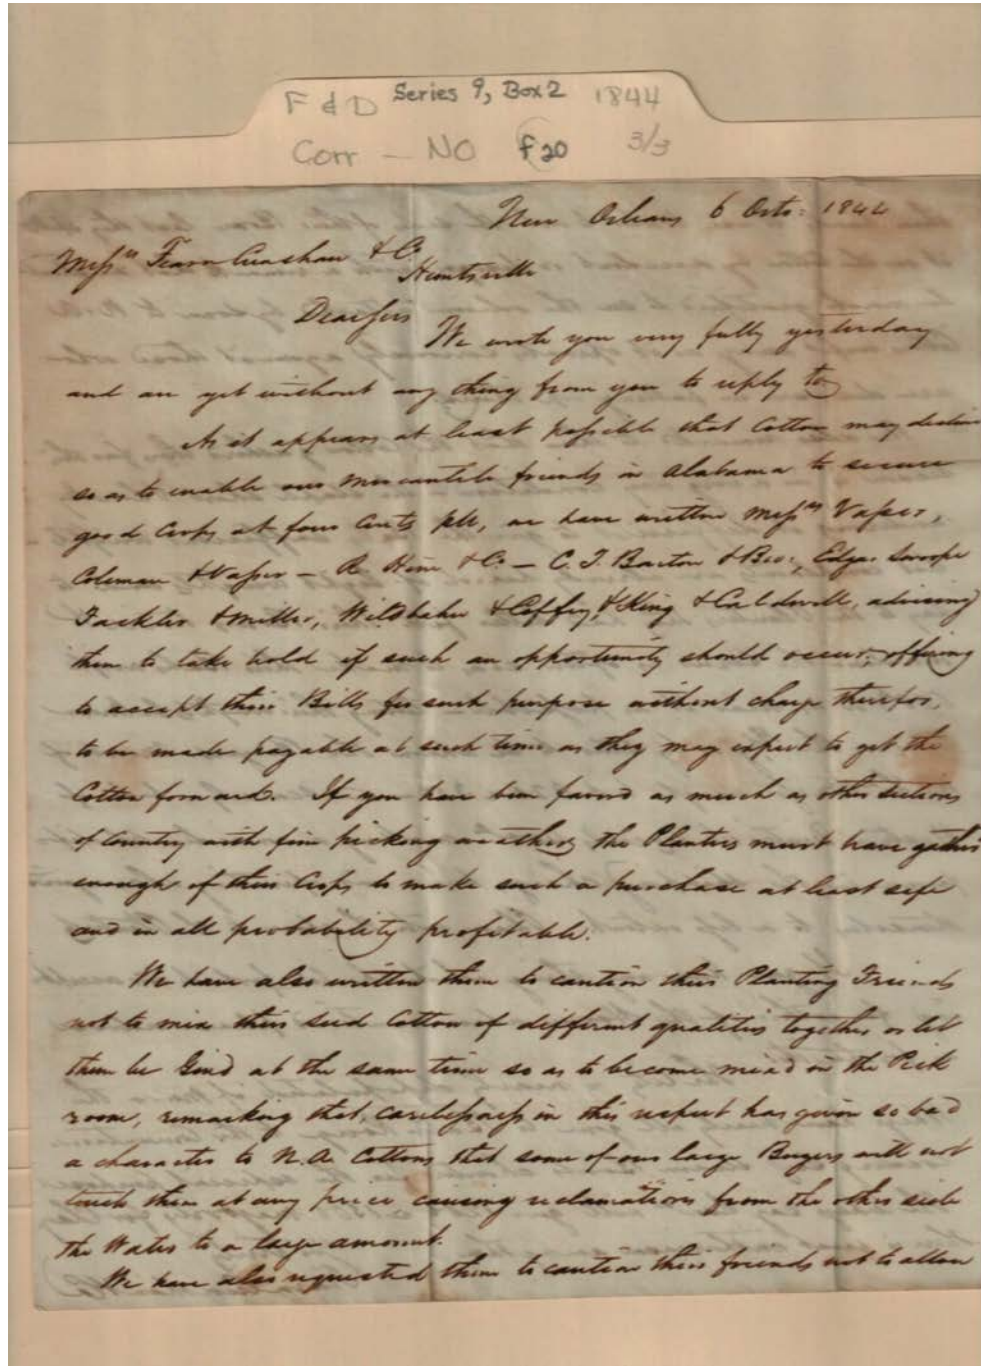 F & D Series 9, Box 2 1844
Corr — NO f 20 3/3
New Orleans 6 Octo: 1844
Messrs Fearn Crenshaw & Co
Huntsville
Dear Sirs
We wrote you very fully yesterday
and are yet without any thing from you to reply to
As it appears at least possible that Cotton may decline
so as to enable our mercantile friends in Alabama to secure
good Crops at four Cents, we have written Messrs Vasser,
Coleman & Vasser — R Hine & Co — C. T. Barton & Bro:, Edgar Swoope
Fackler & Miller, & King & Caldwell, advising
them to take hold if such an opportunity should occur, offering
to accept their Bills for such purpose without charge therefor,
to be made payable at such time as they may expect to get the
Cotton forward. If you have been favord as much as other sections
of Country with fine picking weather, the Planters must have gather
enough of their Crops to make such a purchase at least safe
and in all probability profitable.
We have also written them to caution their Planting Friends
not to mix their seed Cotton of different qualities together or let
them be Gind at the same time so as to become mixd in the Pick
room, remarking that, carelessness in this respect has given so bad
a character to N. A. Cottons that some of our large Buyers will not
touch them at any price causing reclamations from the other side
the Water to a large amount.
We have also requested them to caution their friends not to allow